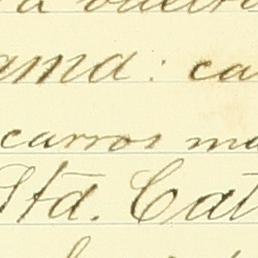 ama: ca
carros ma
Std. Cat